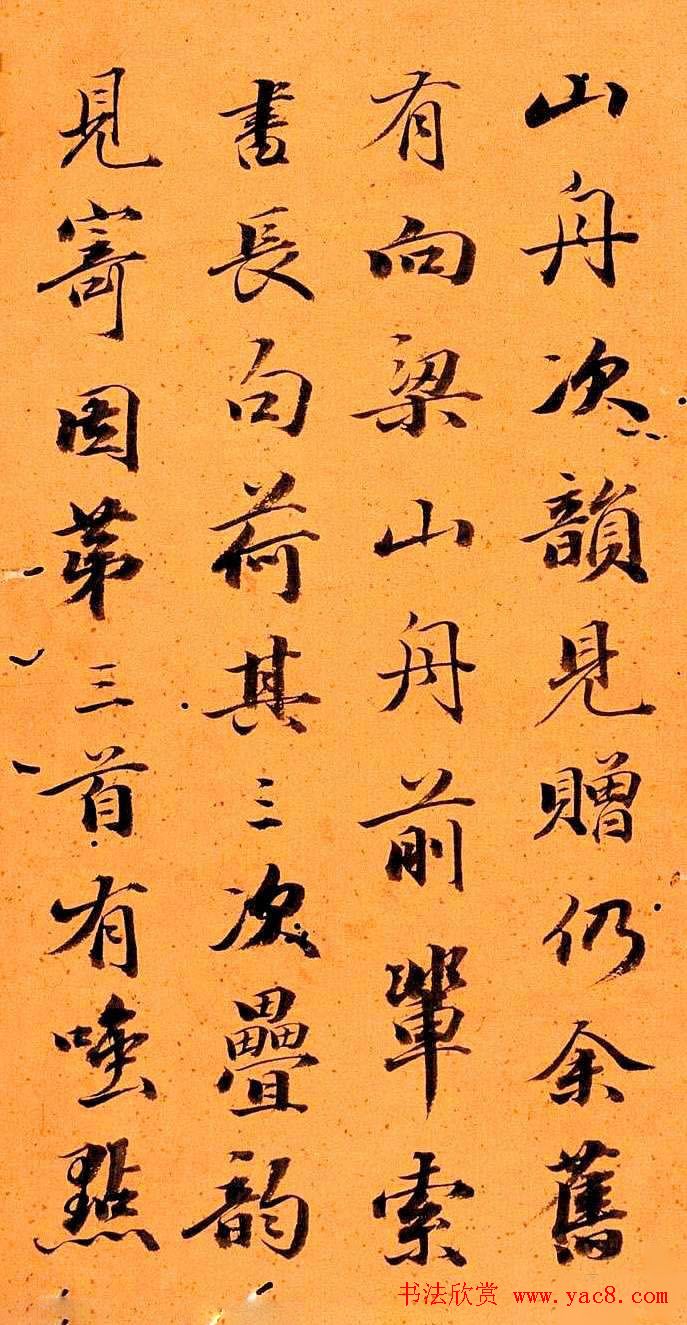 山舟次韻見贈仍余舊
有向梁山舟前輩索
書長句荷其三次疊韵
見寄因苐三首有唾點
书法欣赏 www.yac8.com